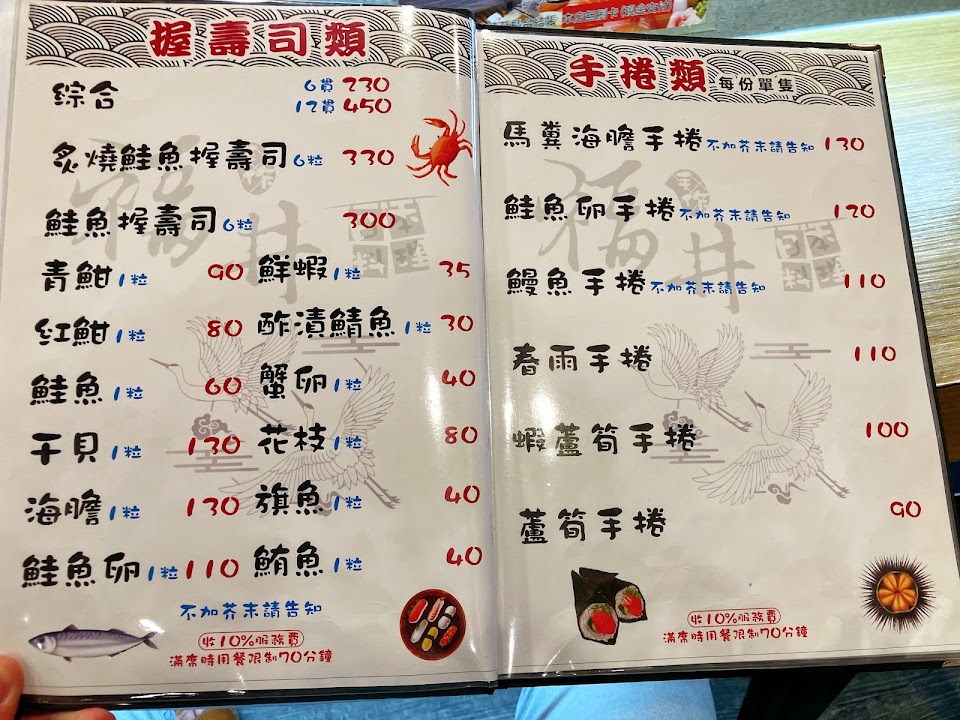 握壽司類
綜合 6貫 230
12貫 450
炙燒鮭魚握壽司 6粒 330
鮭魚握壽司 6粒 300
青魽 1粒 90 鮮蝦 1粒 35
紅魽 1粒 80 酢漬鯖魚 1粒 30
鮭魚 1粒 60 蟹卵 1粒 40
干貝 1粒 130 花枝 1粒 80
海膽 1粒 130 旗魚 1粒 40
鮭魚卵 1粒 110 鮪魚 1粒 40
不加芥末請告知
收10%服務費
滿席時用餐限制70分鐘
手捲類 每份單隻
馬糞海膽手捲 不加芥末請告知 130
鮭魚卵手捲 不加芥末請告知 120
鰻魚手捲 不加芥末請告知 110
春雨手捲 110
蝦蘆筍手捲 100
蘆筍手捲 90
收10%服務費
滿席時用餐限制70分鐘
福井
福井